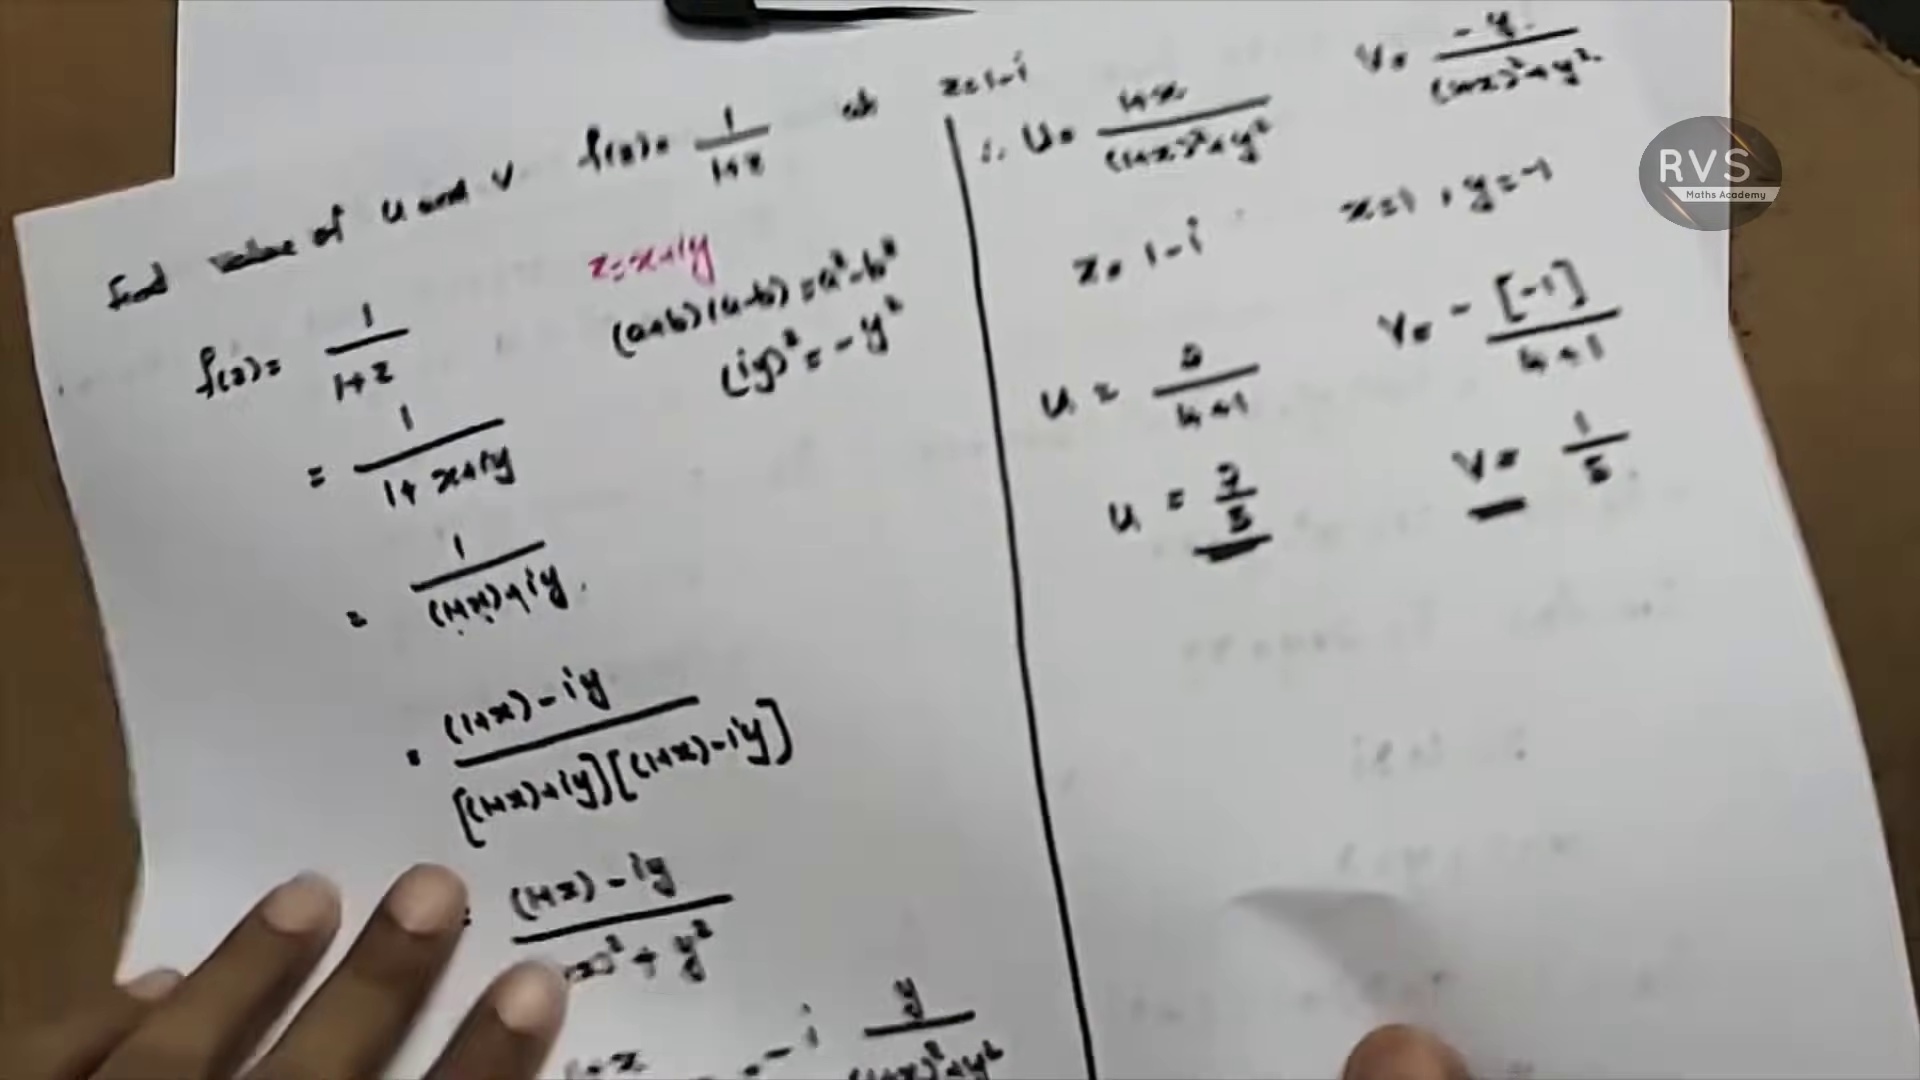 Find value of u and v f(z) = 1/(1+z) at z=1-i
f(z) = 1/(1+z)
z=x+iy
(a+b)(a-b) = a²-b²
(iy)² = -y²
= 1/(1+x+iy)
= 1/((1+x)+iy).
= ((1+x)-iy)/([(1+x)+iy][(1+x)-iy])
= ((1+x)-iy)/(x)²+y²
+x - i y/((1+x)²+y²)
∴ u = (1+x)/((1+x)²+y²) v = -y/((1+x)²+y²)
z = 1-i x=1, y=-1
u = 2/(4+1) v = -[-1]/(4+1)
u = 2/5 v = 1/5
RVS
Maths Academy